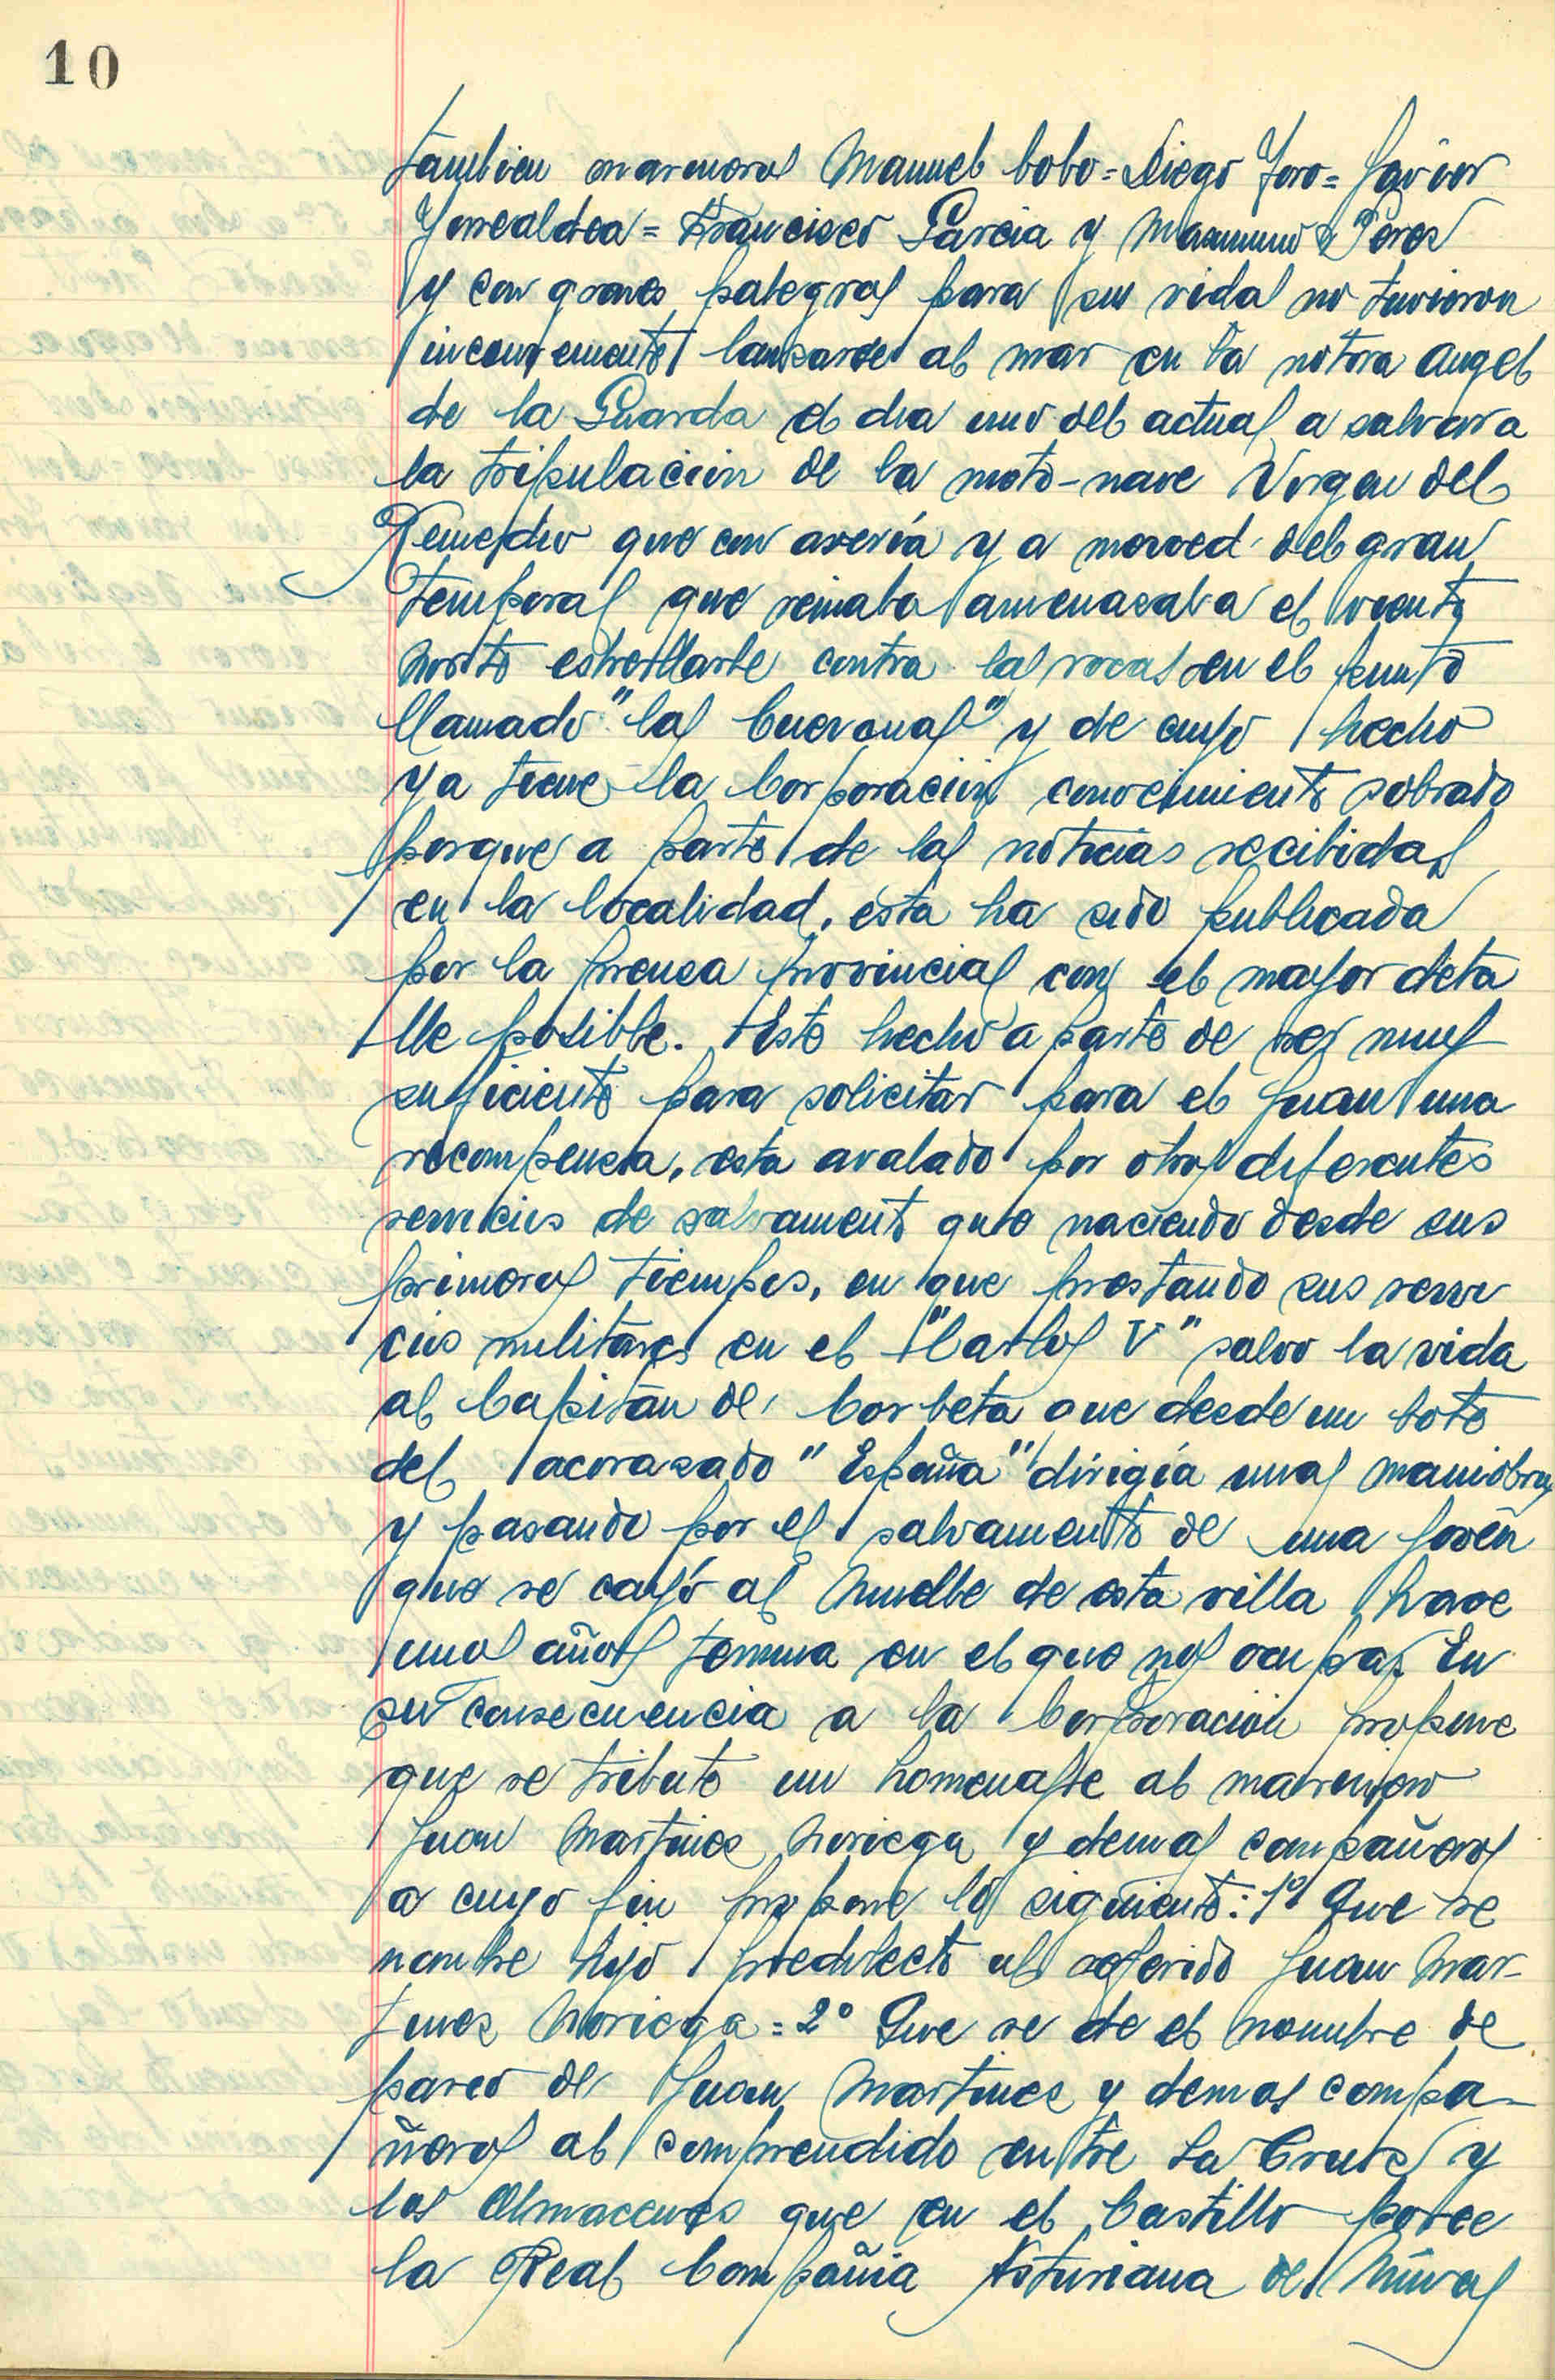 10
tambien marineros Manuel Cobo = Diego Toro = Javier
Torrealdea = Francisco Garcia y Maximino Perez
y con graves peligros para su vidas no tuvieron
inconveniente lanzarse al mar en la motora Angel
de la Guarda el dia uno del actual a salvar a
la tripulación de la moto-nave Virgen del
Remedio que con avería y a merced del gran
temporal que reinaba amenazaba el viento
norte estrellarle contra las rocas en el punto
llamado "las Cuevonas" y de cuyo hecho
ya tiene la Corporación conocimiento sobrado
porque a parte de las noticias recibidas
en la localidad, esta ha sido publicada
por la prensa provincial con el mayor deta
lle posible. Este hecho a parte de ser muy
suficiente para solicitar para el Juan una
recompensa, esta avalado por otros diferentes
servicios de salvamento que naciendo desde sus
primeros tiempos, en que prestando sus servi
cios militares en el "Carlos V" salvo la vida
al Capitan de Corbeta que desde un bote
del acorazado "España" dirigía unas maniobras
y pasando por el salvamento de una joven
que se cayó al Muelle de esta villa hace
unos años termina en el que nos ocupa. En
su consecuencia a la Corporacion propone
que se tribute un homenaje al marinero
Juan Martinez Noriega y demas compañeros
a cuyo fin propone lo siguiente: 1º Que se
nombre hijo predilecto al referido Juan Mar-
tinez Noriega = 2º Que se de el nombre de
paseo de Juan Martinez y demas compa-
ñeros al comprendido entre La Cruz y
los Almacenes que en el Castillo posee
la Real Compañia Asturiana de Minas